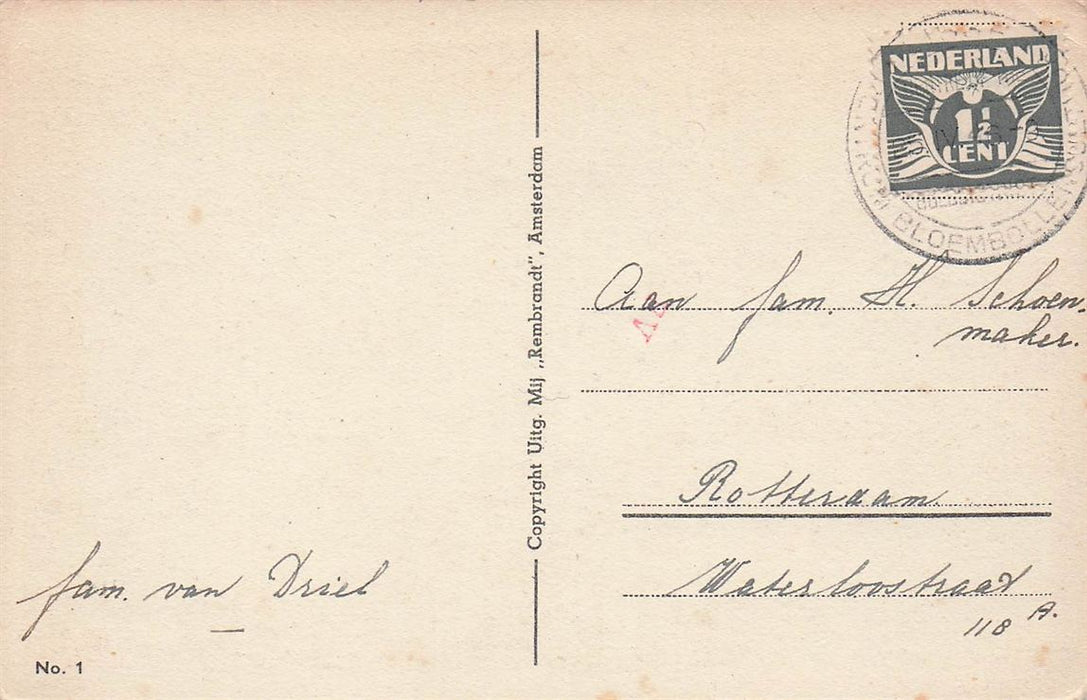 NEDERLAND
1½
CENT
BLOEMBOLLEN
Aan fam. H. Schoen-
maker.
Rotterdam.
Waterloostraat
118 A.
Copyright Uitg. Mij „Rembrandt", Amsterdam
fam. van Driel
No. 1